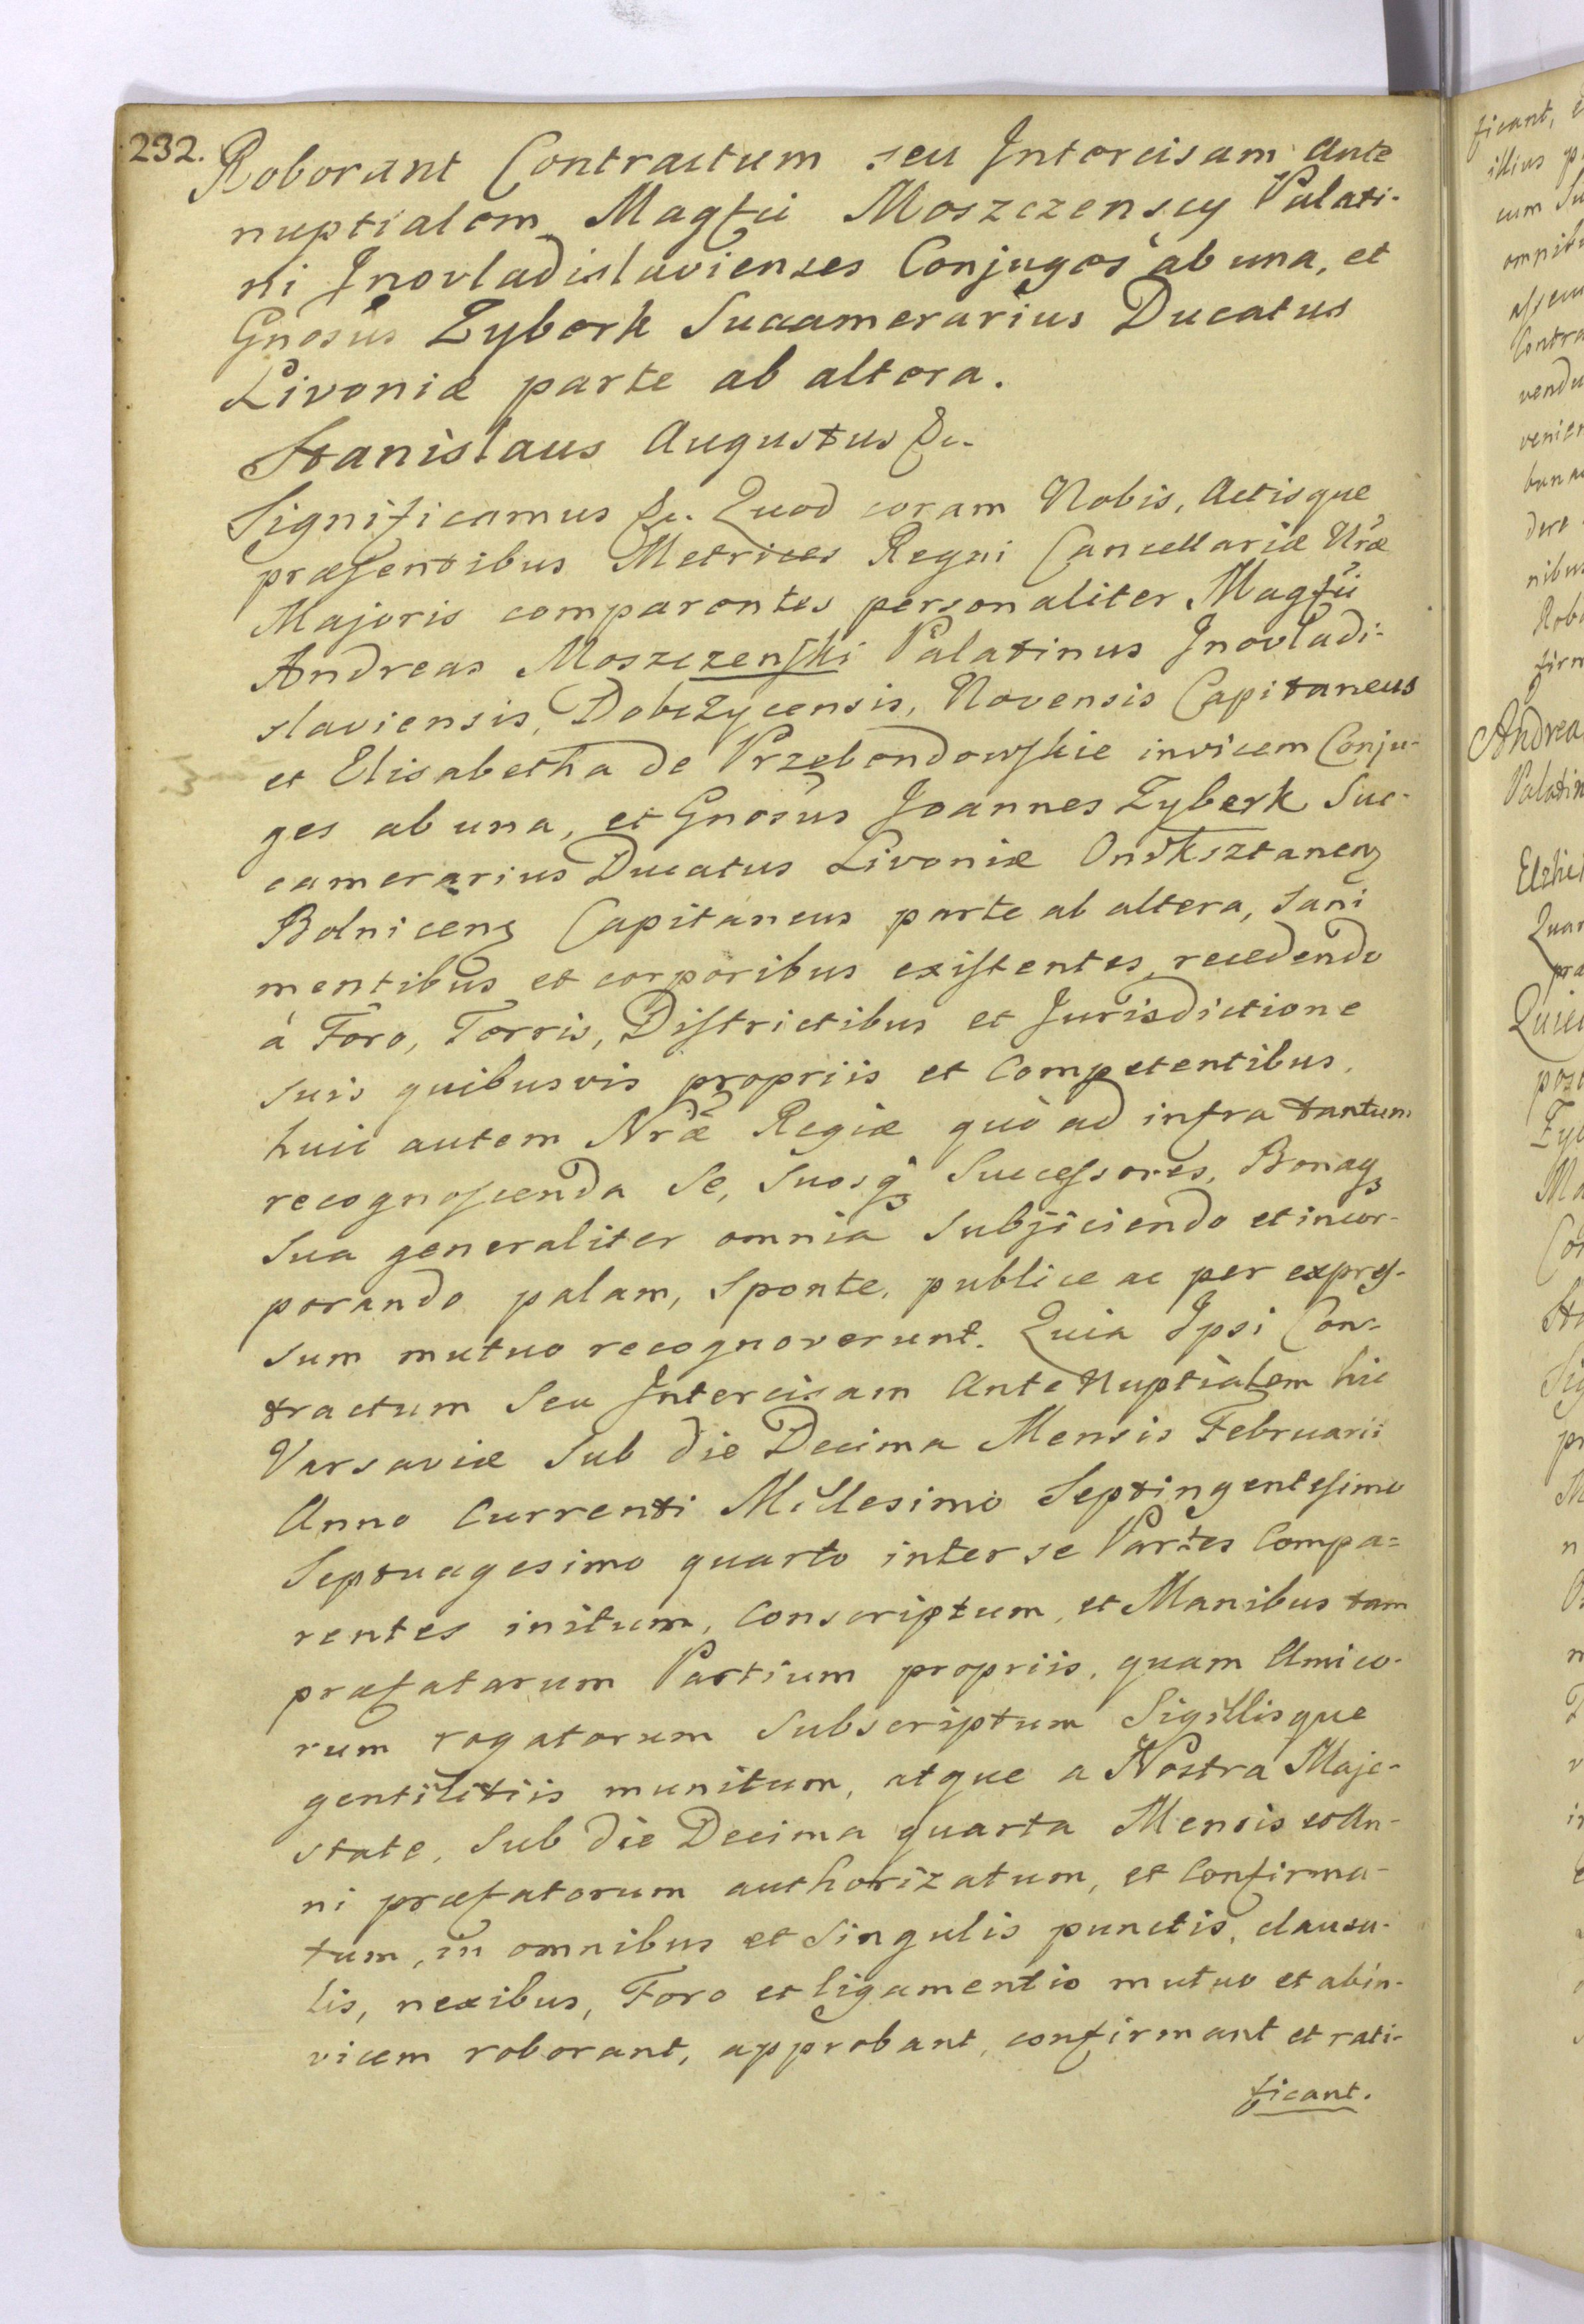 232.
Roborant Contractum seu Intercisam ante
nuptialem Magfii Moszczenscy Palati-
ni Inovladislavienses Conjuges ab una, et
Gnosus Zyberk Succamerarius Ducatus
Livoniæ parte ab altera.
Stanislaus Augustus &c.
Significamus &c. Quod coram Nobis, Actisque
præsentibus Metrices Regni Cancellariæ Nræ
Majoris comparentes personaliter Magfii
Andreas Moszczenski Palatinus Inovladi-
slaviensis, Dobczycensis, Novensis Capitaneus
et Elisabetha de Przebendowskie invicem Conju-
ges ab una, et Gnosus Joannes Zyberk Suc-
camerarius Ducatus Livoniæ
Bolnicens Capitaneus parte ab altera, sani
mentibus et corporibus existentes, recedendo
à Foro, Terris, Districtibus et Jurisdictione
suis quibusvis propriis et Competentibus,
huic autem Nræ Regiæ quò ad infra tantum
recognoscenda Se, Suosq3 Successores, Bonaq3
Sua generaliter omnia Subjiciendo et incor-
porando palam, Sponte, publice ac per expres-
sum mutuo recognoverunt. Quia Ipsi Con-
tractum Seu Intercisam Ante Nuptialem hic
Varsaviæ Sub die Decima Mensis Februarii
Anno Currenti Millesimo Septingentesimo
Septuagesimo quarto inter se Partes Compa=
rentes initum, Conscriptum, et Manibus tam
præfatarum Partium propriis, quam Amico-
rum rogatorum Subscriptum Sigillisque
gentilitiis munitum, atque a Nostra Maje-
state, Sub die Decima quarta Mensis et An-
ni præfatorum authorizatum, et Confirma-
tum, in omnibus et Singulis punctis, clausu-
lis, nexibus, Foro et ligamentis mutuo et abin-
vicem roborant, approbant, confirmant et rati-
ficant.